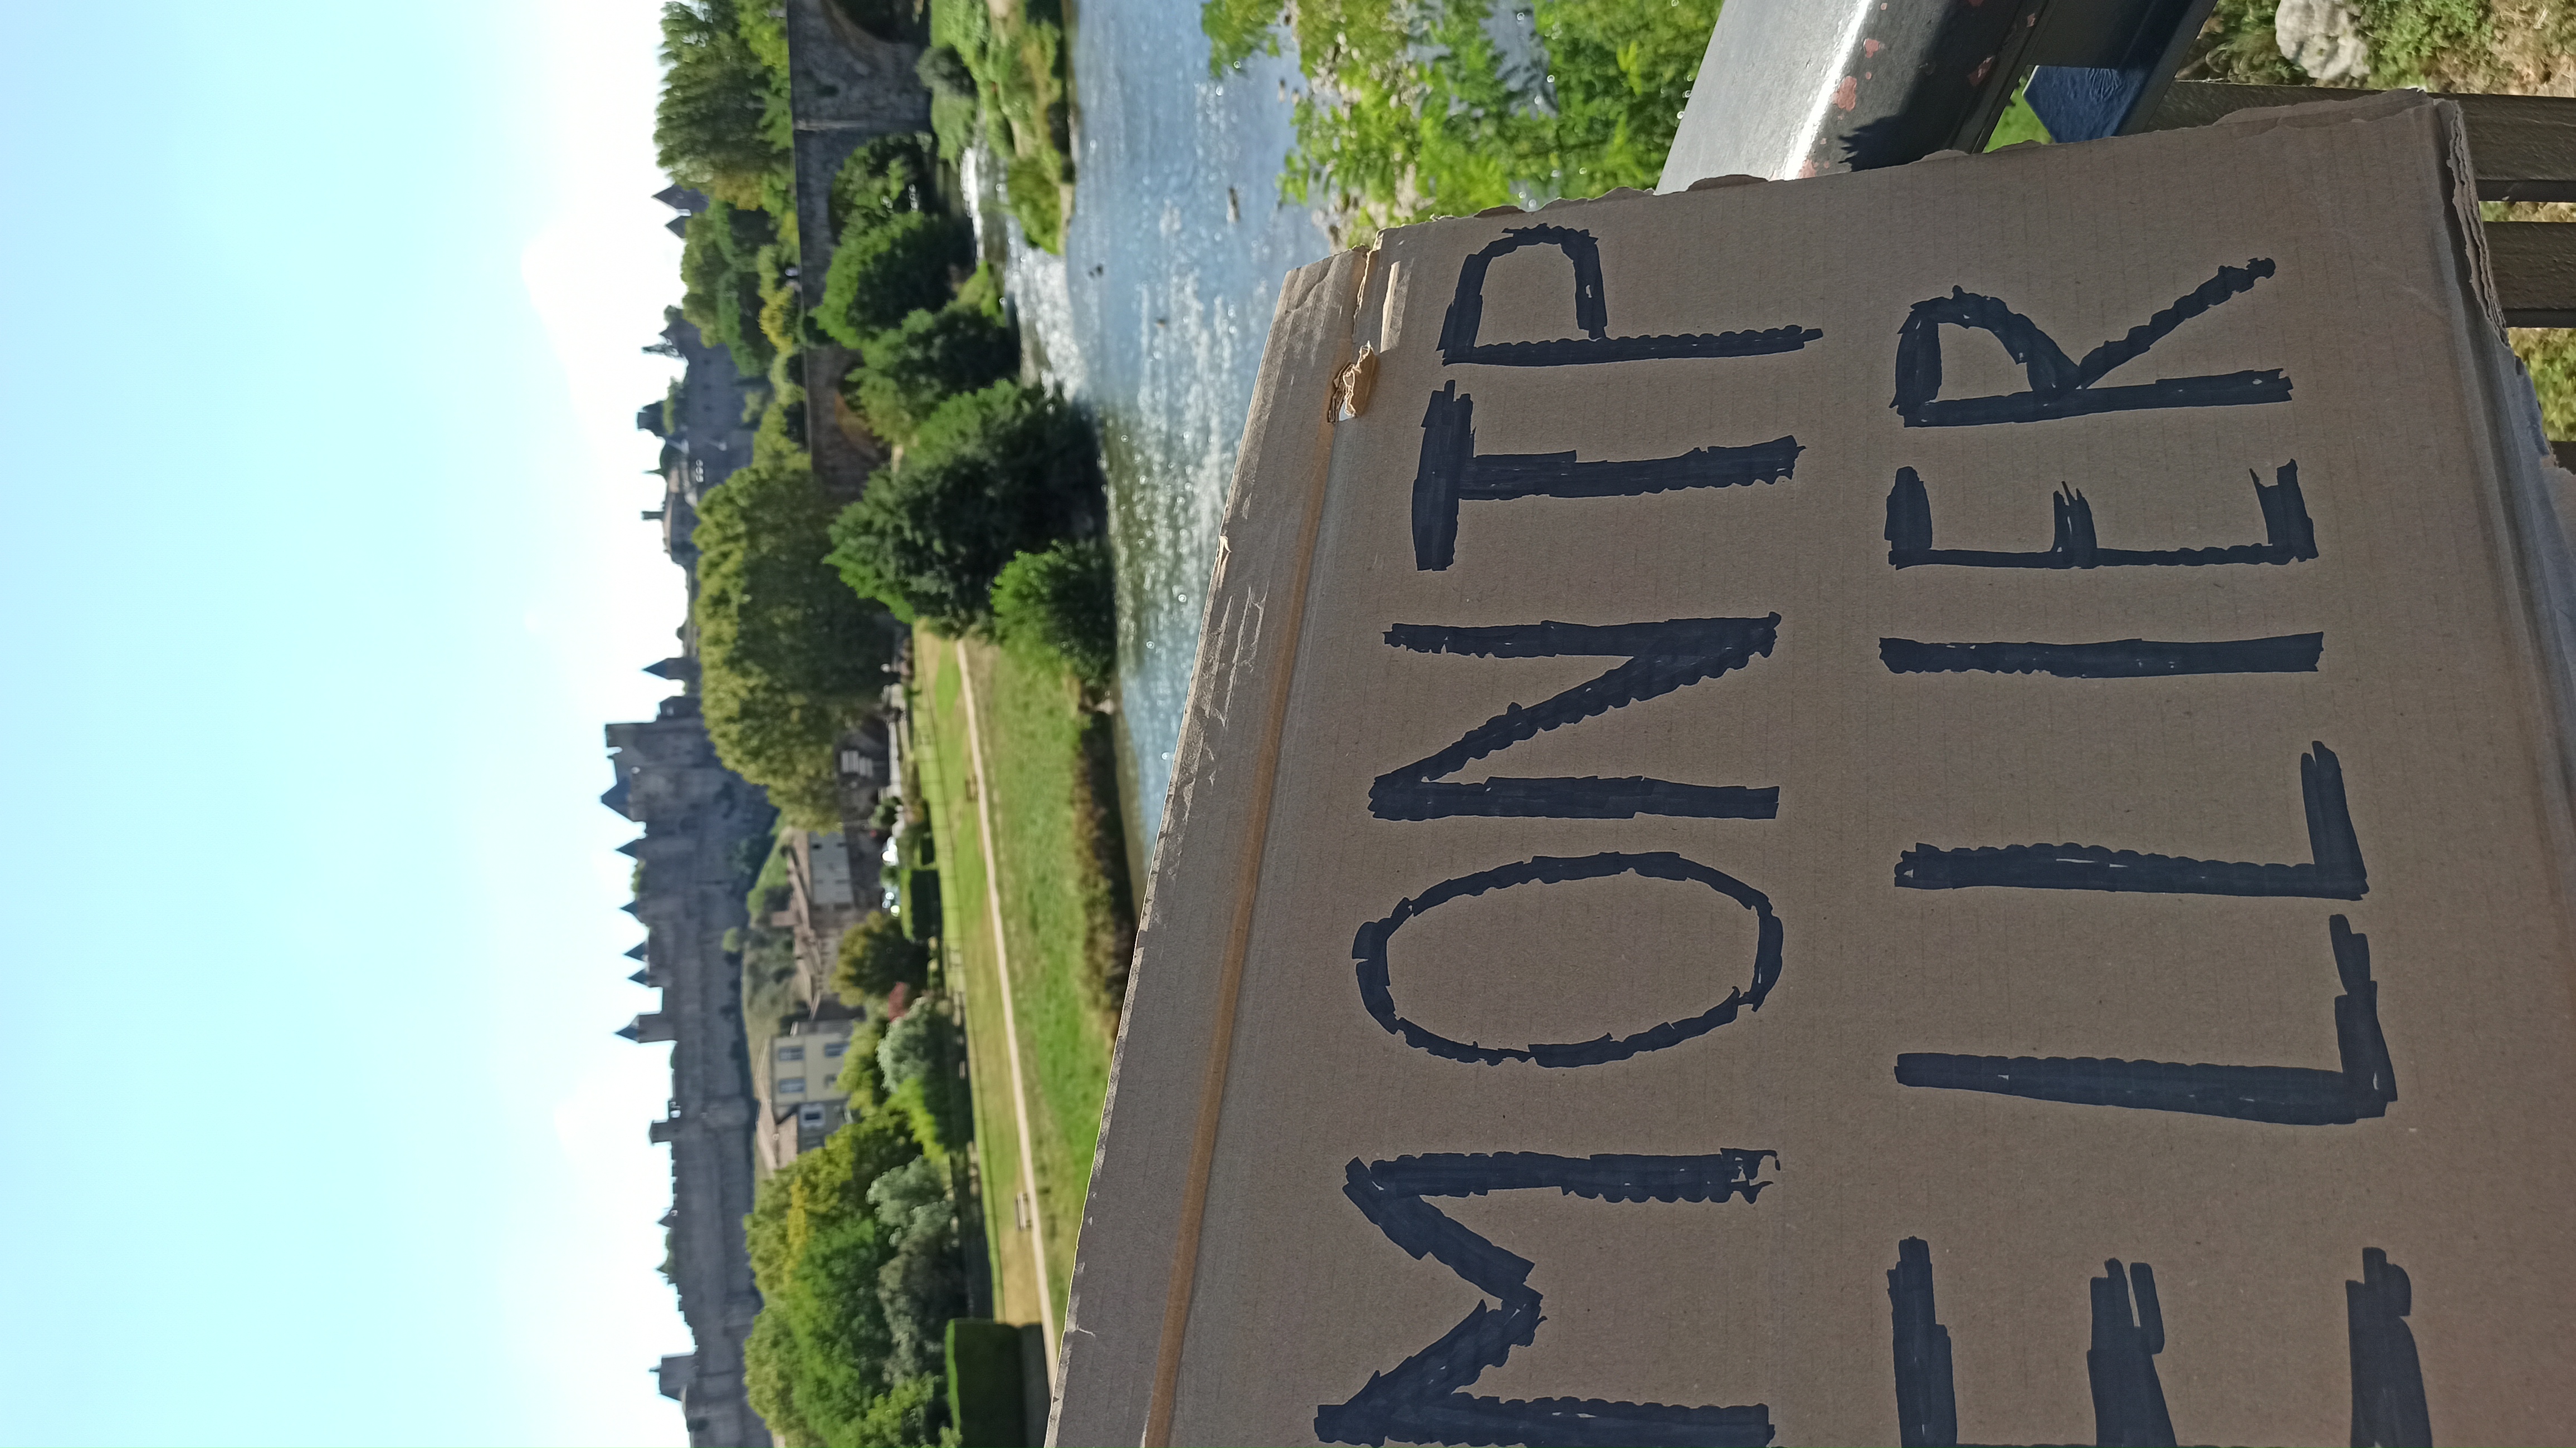 MONTP
ELLIER